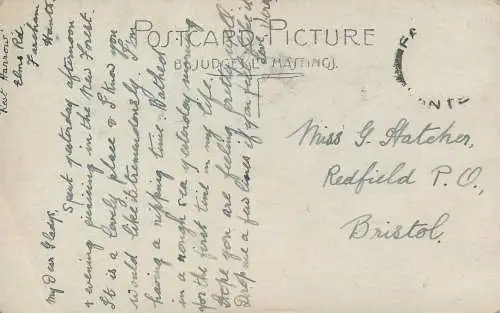 POSTCARD PICTURE
BY JUDGES LTD HASTINGS.
Kest Harrow
Elms Rd
Fareham
Hants
My dear Gladys,
Spent yesterday afternoon
& evening running in the New Forest.
It is a lovely place & I know you
would like it tremendously. I'm
having a ripping time. Bathed
in a rough sea yesterday morning
for the first time in my life.
Hope you are feeling pretty well.
Drop me a few lines if you feel like it
Love
Miss G. Hatcher,
Redfield P.O,
Bristol.